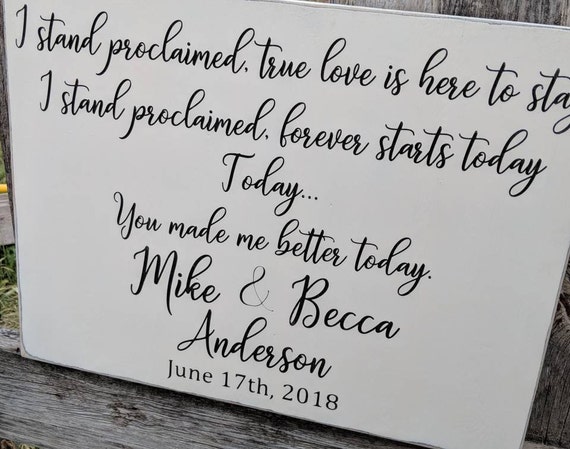 I stand proclaimed, true love is here to stay
I stand proclaimed, forever starts today
Today...
You made me better today.
Mike & Becca
Anderson
June 17th, 2018